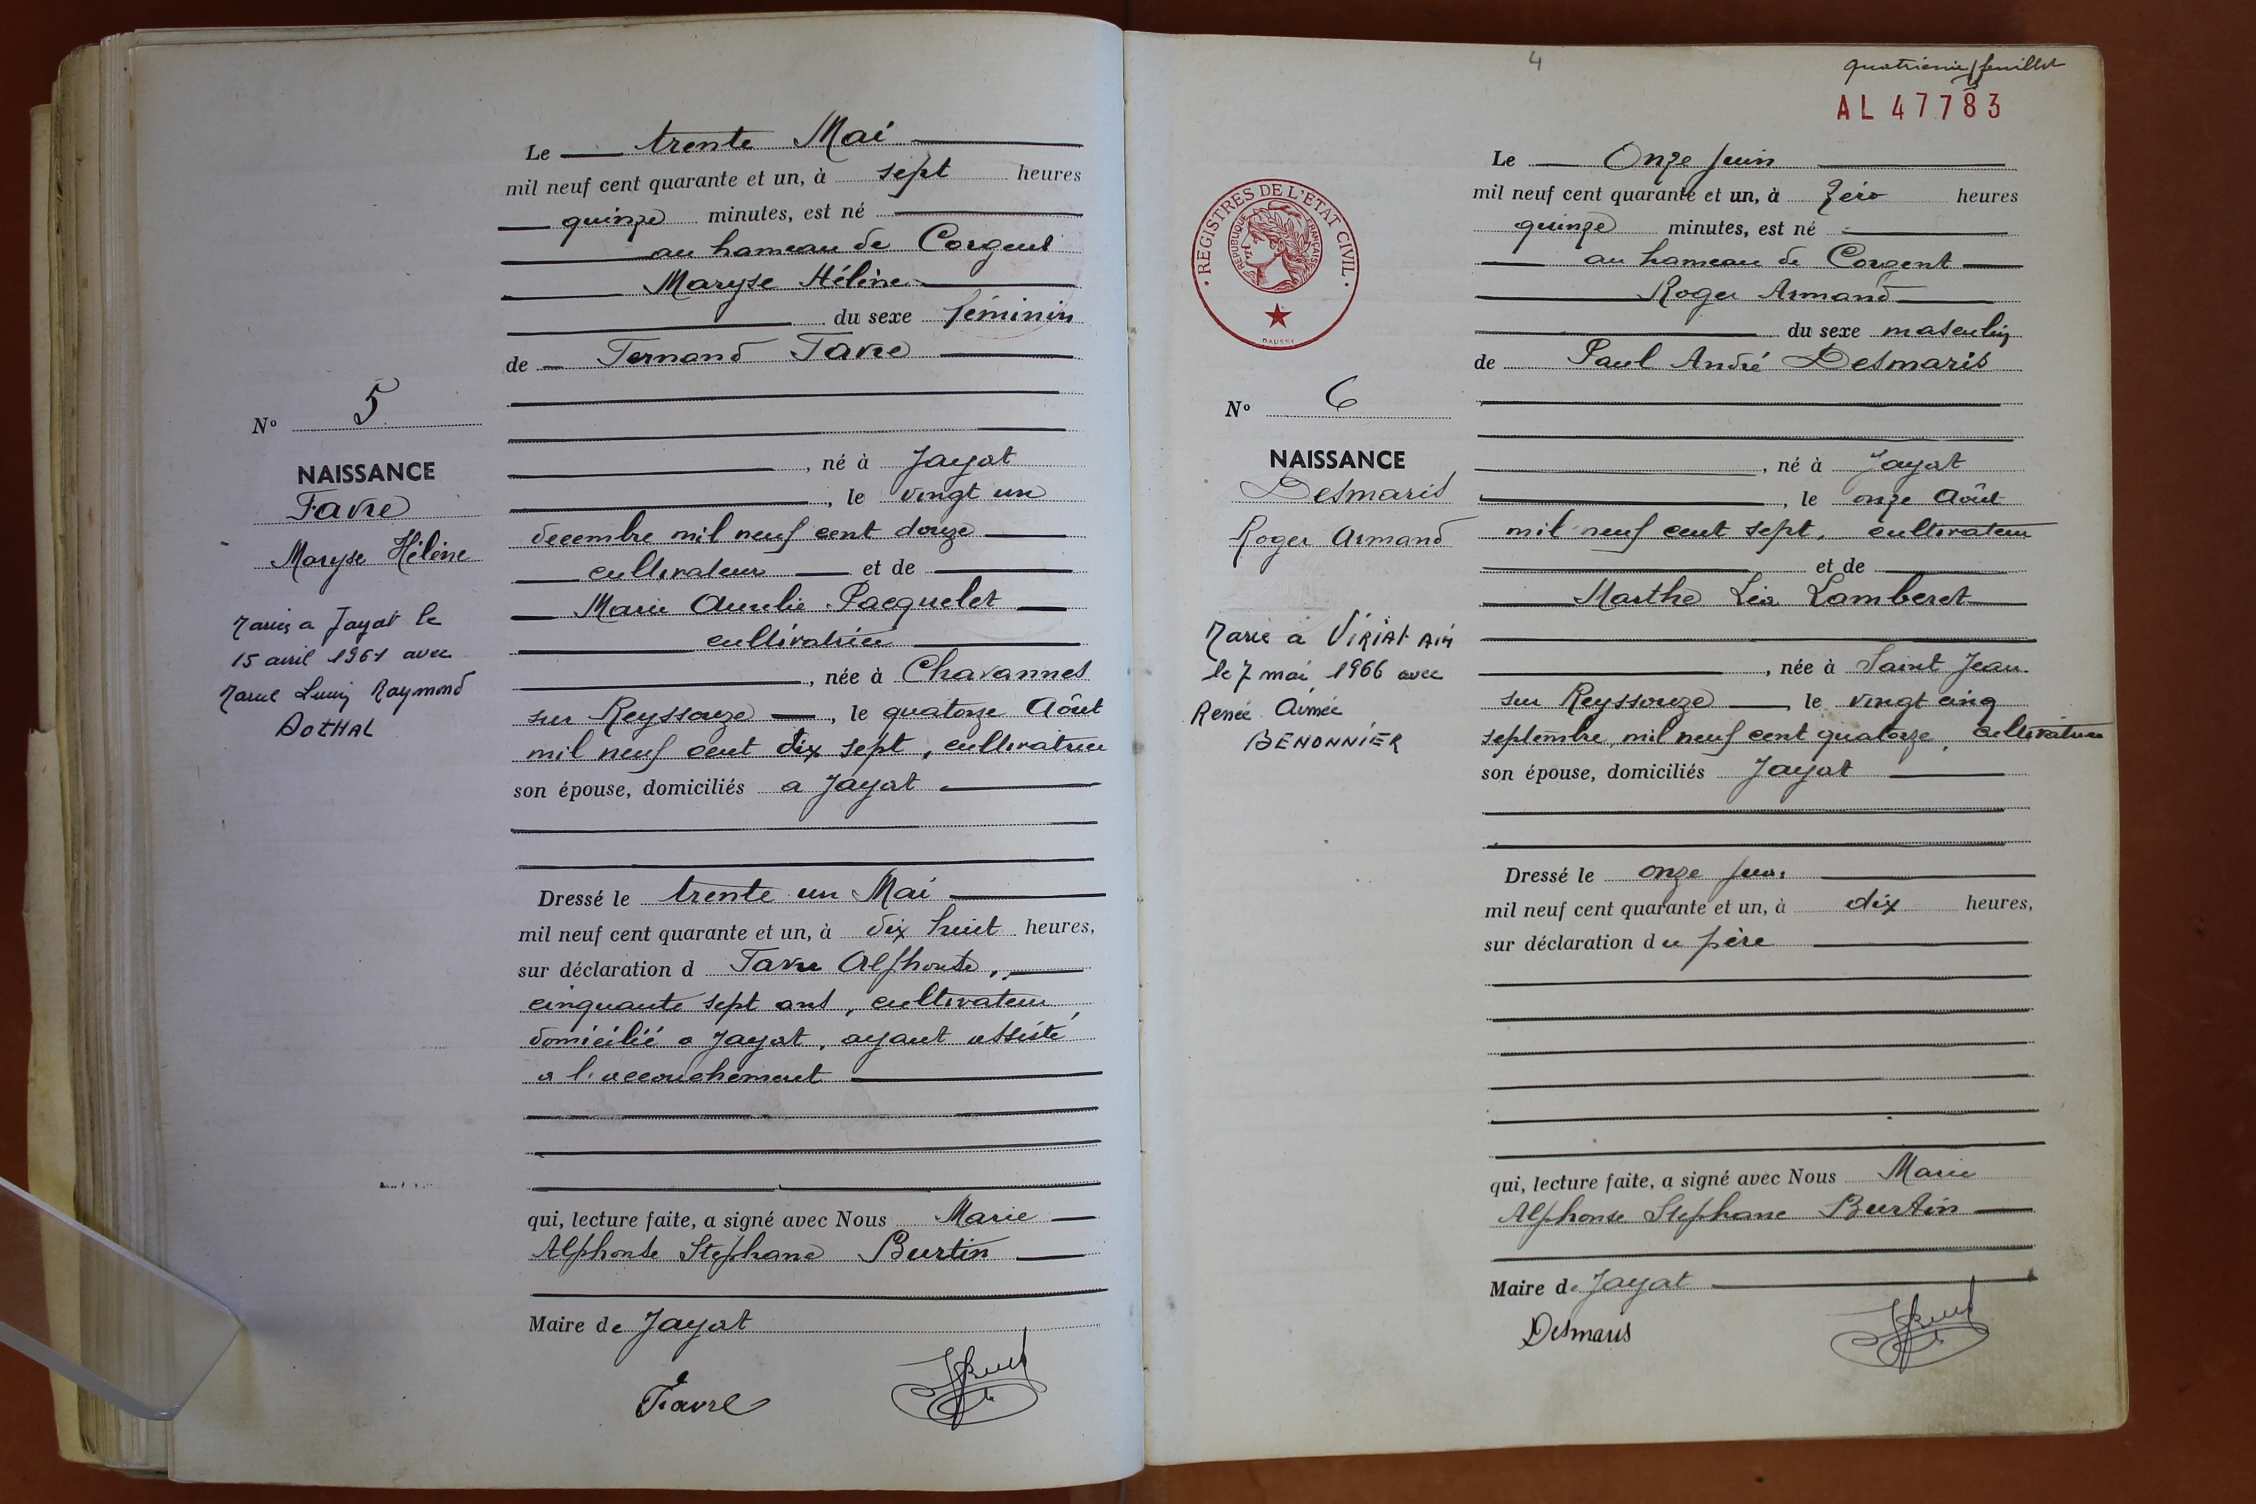 Le trente Mai
mil neuf cent quarante et un, à sept heures
quinze minutes, est né
au hameau de Corgent
Maryse Hélène
du sexe féminin
de Fernand Favre
, né à Jayat
, le vingt un
decembre mil neuf cent douze
cultivateur et de
Marie Aurelie Pacquelet
cultivatrice
, née à Chavannes
sur Reyssouze , le quatorze Aôut
mil neuf cent dix sept, cultivatrice
son épouse, domiciliés a Jayat
Dressé le trente un Mai
mil neuf cent quarante et un, à dix huit heures,
sur déclaration d Favre Alphonse,
cinquante sept ans, cultivateur
domicilié a Jayat, ayant assisté
a l'accouchement
qui, lecture faite, a signé avec Nous Marie
Alphonse Stephane Burtin
Maire de Jayat
Favre
Nº 5
NAISSANCE
Favre
Maryse Hélène
Mariée a Jayat le
15 avril 1961 avec
Marcel Raymond
4
quatrième feuillet
AL 47783
REGISTRES DE L'ETAT CIVIL
REPUBLIQUE FRANÇAISE
DAUSSY
Nº 6
NAISSANCE
Desmaris
Roger Armand
Marié a VIRIAT AIN
le 7 mai 1966 avec
Renée Aimée
BEHONNIER
Le Onze Juin
mil neuf cent quarante et un, à Zéro heures
quinze minutes, est né
au hameau de Corgent
Roger Armand
du sexe masculin
de Paul André Desmaris
, né à Jayat
, le onze Aôut
mil neuf cent sept, cultivateur
et de
Marthe Léa Lamberet
, née à Saint Jean
sur Reyssouze , le vingt cinq
septembre, mil neuf cent quatorze, cultivatrice
son épouse, domiciliés Jayat
Dressé le onze Juin
mil neuf cent quarante et un, à dix heures,
sur déclaration du père
qui, lecture faite, a signé avec Nous Marie
Alphonse Stephane Burtin
Maire de Jayat
Desmaris